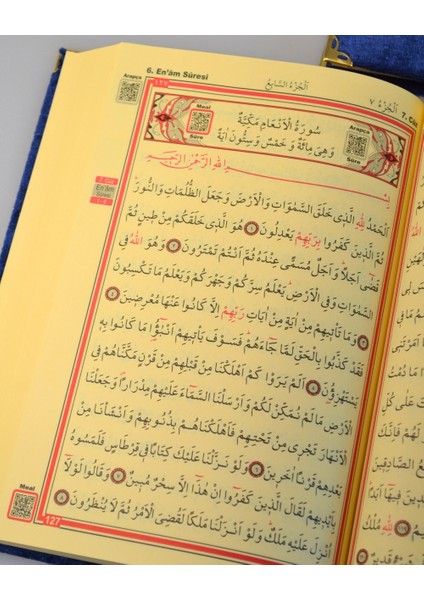 6. En'âm Sûresi
اَلْجُزْءُ السَّابِعُ
١٢٧
اَلْجُزْءُ ٧
7. Cüz
Arapça
Meal
Sûre
Arapça
Sûre
سُورَةُ الْاَنْعَامِ مَكِّيَّةٌ
وَهِىَ مِائَةٌ وَ خَمْسٌ وَسِتُّونَ اٰيَةً
بِسْمِ اللّٰهِ الرَّحْمٰنِ الرَّحِيمِ
7. Cüz
En'âm
Sûresi
اَلْحَمْدُ لِلّٰهِ الَّذِى خَلَقَ السَّمٰوَاتِ وَالْاَرْضَ وَجَعَلَ الظُّلُمَاتِ وَالنُّورَ
ثُمَّ الَّذِينَ كَفَرُوا بِرَبِّهِمْ يَعْدِلُونَ ﴿١﴾ هُوَ الَّذِى خَلَقَكُمْ مِنْ طِينٍ ثُمَّ
قَضٰٓى اَجَلًا وَاَجَلٌ مُسَمًّى عِنْدَهُ ثُمَّ اَنْتُمْ تَمْتَرُونَ ﴿٢﴾ وَهُوَ اللّٰهُ فِى
السَّمٰوَاتِ وَفِى الْاَرْضِ يَعْلَمُ سِرَّكُمْ وَجَهْرَكُمْ وَيَعْلَمُ مَا تَكْسِبُونَ
﴿٣﴾ وَمَا تَأْتِيهِمْ مِنْ اٰيَةٍ مِنْ اٰيَاتِ رَبِّهِمْ اِلَّا كَانُوا عَنْهَا مُعْرِضِينَ ﴿٤﴾
فَقَدْ كَذَّبُوا بِالْحَقِّ لَمَّا جَٓاءَهُمْ فَسَوْفَ يَأْتِيهِمْ اَنْبٰٓؤُ۬ا مَا كَانُوا بِهِ
يَسْتَهْزِؤُ۫نَ ﴿٥﴾ اَلَمْ يَرَوْا كَمْ اَهْلَكْنَا مِنْ قَبْلِهِمْ مِنْ قَرْنٍ مَكَّنَّاهُمْ فِى
الْاَرْضِ مَا لَمْ نُمَكِّنْ لَكُمْ وَاَرْسَلْنَا السَّمَٓاءَ عَلَيْهِمْ مِدْرَارًا وَجَعَلْنَا
الْاَنْهَارَ تَجْرِى مِنْ تَحْتِهِمْ فَاَهْلَكْنَاهُمْ بِذُنُوبِهِمْ وَاَنْشَأْنَا مِنْ
بَعْدِهِمْ قَرْنًا اٰخَرِينَ ﴿٦﴾ وَلَوْ نَزَّلْنَا عَلَيْكَ كِتَابًا فِى قِرْطَاسٍ فَلَمَسُوهُ
بِاَيْدِيهِمْ لَقَالَ الَّذِينَ كَفَرُٓوا اِنْ هٰذَٓا اِلَّا سِحْرٌ مُبِينٌ ﴿٧﴾ وَقَالُوا لَوْلَٓا
اُنْزِلَ عَلَيْهِ مَلَكٌ وَلَوْ اَنْزَلْنَا مَلَكًا لَقُضِىَ الْاَمْرُ ثُمَّ لَا يُنْظَرُونَ ﴿٨﴾
Meal
127